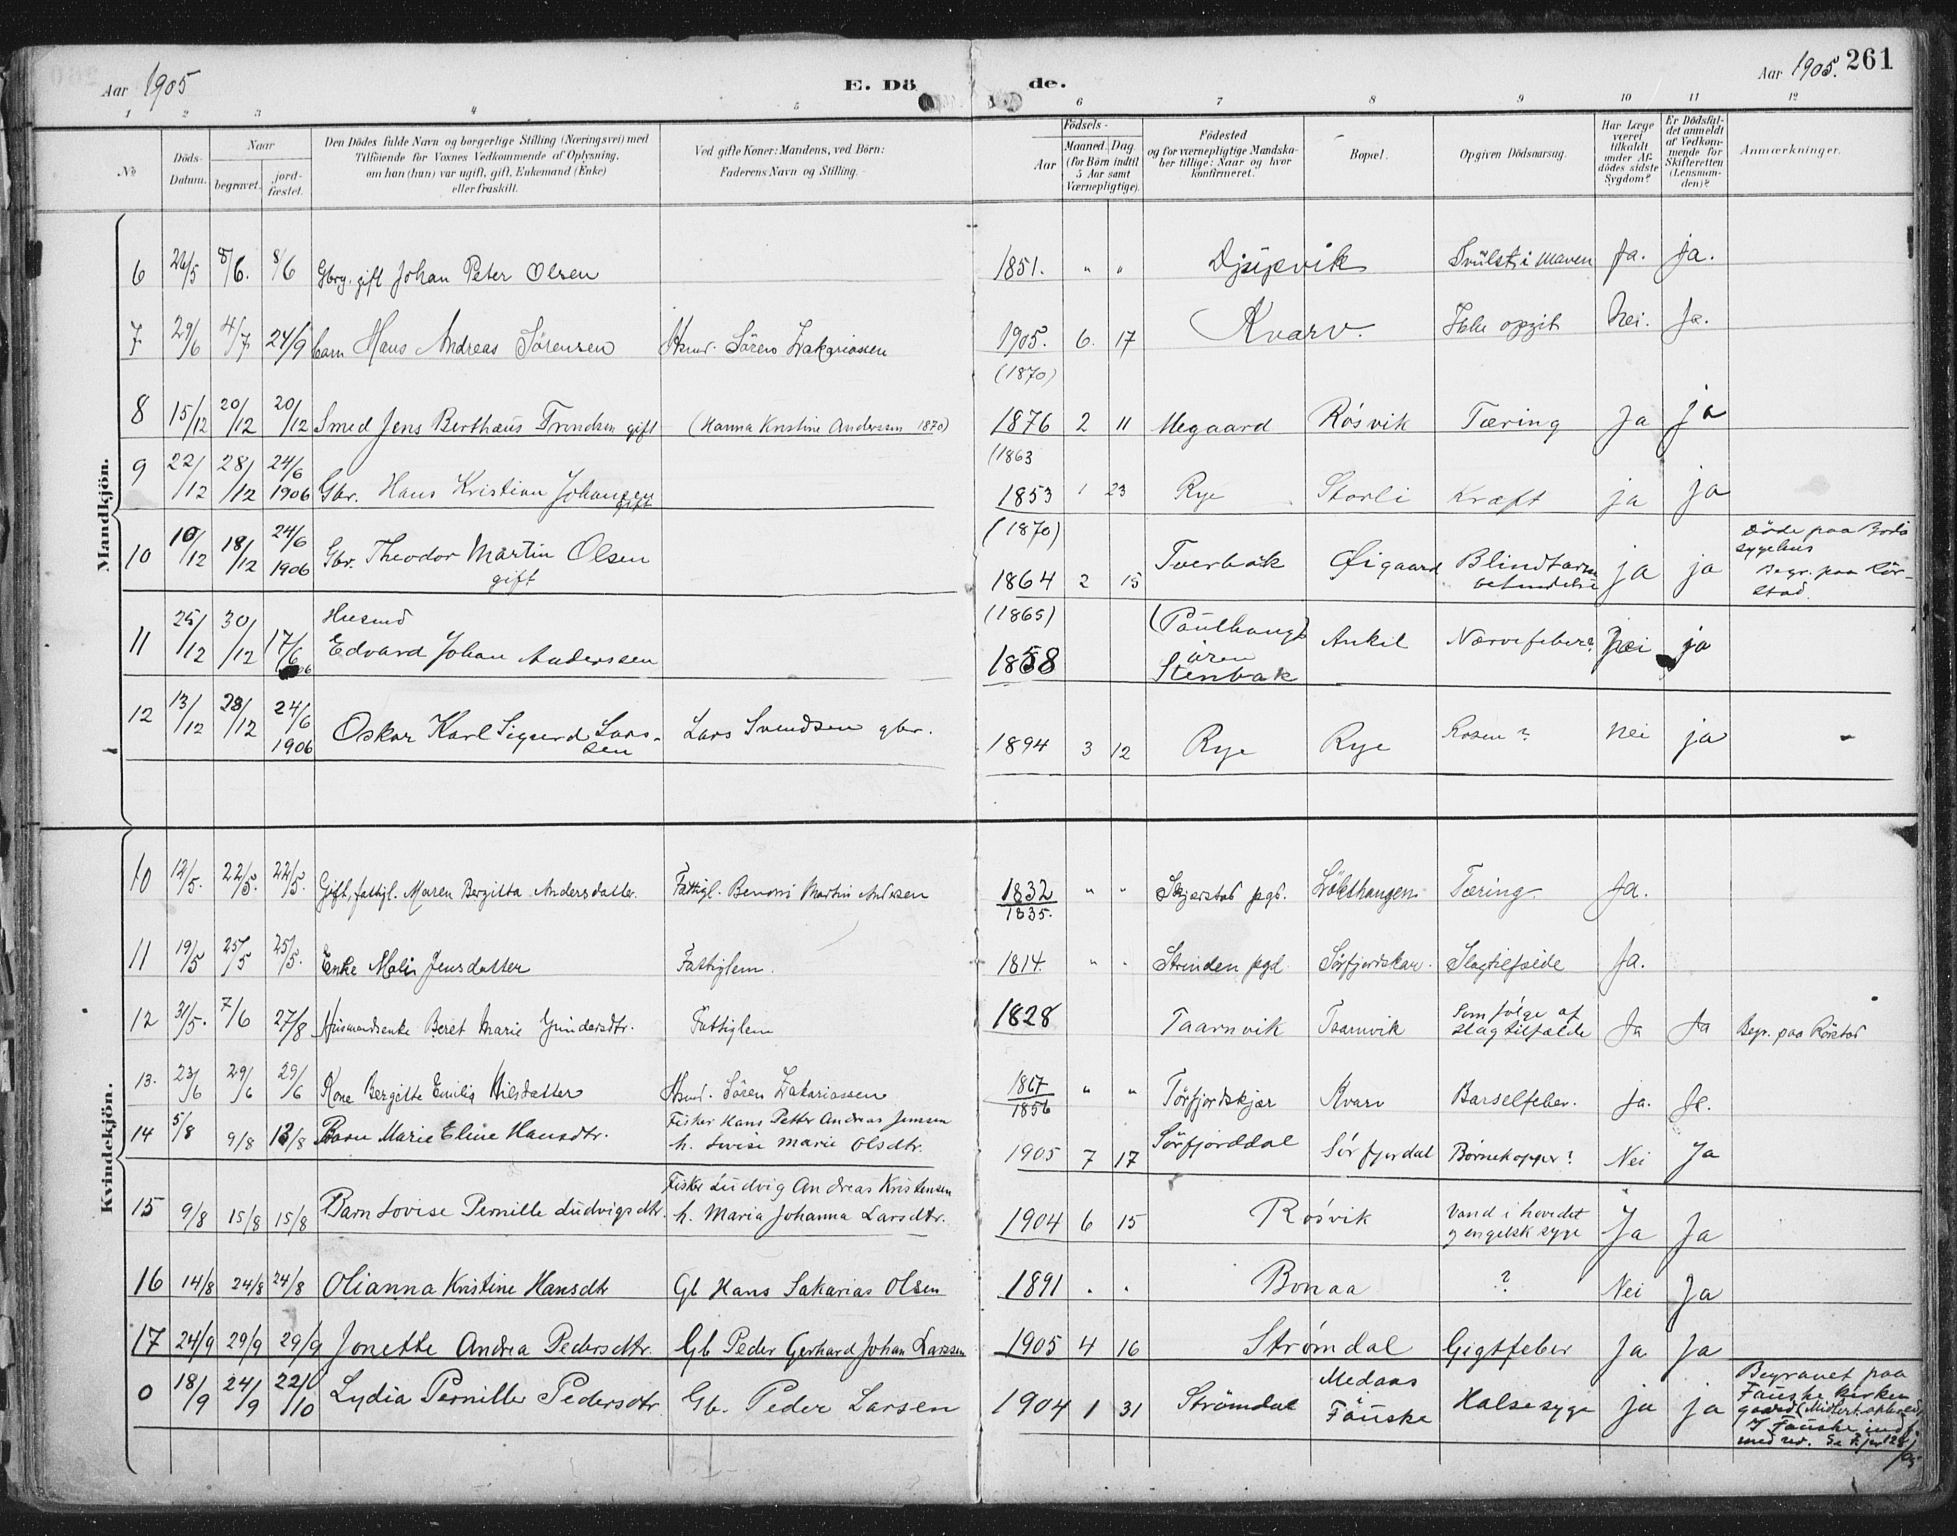 Aar 1905
E. Dö
de.
Aar 1905. 261
1 2 3 4 5 6 7 8 9 10 11 12
No
Döds-Datum.
Naar
begravet.
jord-fæstet.
Den Dödes fulde Navn og borgerlige Stilling (Næringsvei) med
Tilföiende for Voxnes Vedkommende af Oplysning,
om han (hun) var ugift, gift, Enkemand (Enke)
eller fraskilt.
Ved gifte Koner: Mandens, ved Börn:
Faderens Navn og Stilling.
Födsels-
Aar
Maaned. Dag.
(for Börn indtil
5 Aar samt
Værnepligtige).
Födested
og for værnepligtige Mandska-
ber tillige: Naar og hvor
konfirmeret.
Bopæl.
Opgiven Dödsaarsag.
Har Læge
været
tilkaldt
under Af-
dödes sidste
Sygdom?
Er Dödsfal-
det anmeldt
af Vedkom-
mende for
Skifteretten
(Lensman-
den)?
Anmærkninger.
Mandkjön.
6 26/5 8/6. 8/6 Gbrg. gift Johan Peter Olsen 1851. " " Djupvik Svulst i Maven Ja. Ja.
7 29/6 4/7 24/9 barn Hans Andreas Sörensen Hsmd. Sören Zakariassen 1905. 6. 17 Kvarv. Ikke opgit Nei. Ja.
8 15/12 20/12 20/12 Smed Jens Berthæus Trondsen gift (Hanna Kristine Anderssen 1870) (1870) 1876 2 11 Megaard Røsvik Tæring Ja ja
9 22/12 28/12 24/6 1906 Gbr. Hans Kristian Johansen gift (1863 1853 1 23 Rye Storli Kræft ja ja
10 10/12 18/12 24/6 1906 Gbr. Theodor Martin Olsen gift (1870) 1864 2 15 Tverbak Øigaard Blindtarm betændelse ja ja Döde paa Bodö sygehus Begr. paa Rör-stad.
11 25/12 30/12 17/6 06 Husmd Edvard Johan Anderssen (1865) 1858 (Paulhaug) øren Stenbak Ankil Nærvefeber? Nei ja
12 13/12 28/12 24/6 1906 Oskar Karl Sigurd Lars-sen Lars Svendsen gbr. 1894 3 12 Rye Rye Rosen? Nei ja
Kvindekjön.
10 12/5. 22/5. 22/5. Gift, fattigl. Maren Bergitta Andersdatter. Fattigl. Benoni Martin Andersen 1832 1835. " " Skjerstad pgd. Løkthaugen Tæring Ja.
11 19/5 25/5 25/5. Enke Mali Jensdatter Fattiglem. 1814. " " Strinden pgd. Sörfjordskar. Slagtilfælde Ja.
12 31/5. 7/6 27/8 Husmandsenke Beret Marie Gundersdtr. Fattiglem 1828 Taarnvik Taarnvik Som følge af slagtilfælde Ja Ja Begr. paa Rörstad
13. 23/6 29/6 29/6 Kone Bergitte Emilia Nilsdatter Hsmd. Sören Zakariassen 1867 1856 " " Sörfjordskjær Kvarv Barselfeber. ja. Ja.
14 5/8 9/8 13/8 Barn Marie Eline Hansdtr. Fisker Hans Petter Andreas Jensen h. Lovise Marie Olsdtr. 1905 7 17 Sörfjorddal Sörfjordal Børnekopper? Nei Ja
15 9/8 15/8 15/8 Barn Lovise Pernille Ludvigsdtr. Fisker Ludvig Andreas Kristensen h. Maria Johanna Larsdtr. 1904 6 15 Røsvik Vand i hovedet og engelsk syge Ja Ja
16 14/8 24/8 24/8 Olianna Kristine Hansdtr Gb Hans Sakarias Olsen 1891 . . Bonaa ? Nei Ja
17 24/9 29/9 29/9 Jonette Andrea Pedersdtr. Gb Peder Gerhard Johan Larssen 1905 4 16 Strømdal Gigtfeber Ja Ja
0 18/9 24/9 22/10 Lydia Pernille Pedersdtr Gb. Peder Larsen 1904 1 31 Strömdal Medaas Fauske Halsesyge ja ja Begravet paa Fauske kirkegaard (Midlert. ophold) I Fauske indf. med nr.